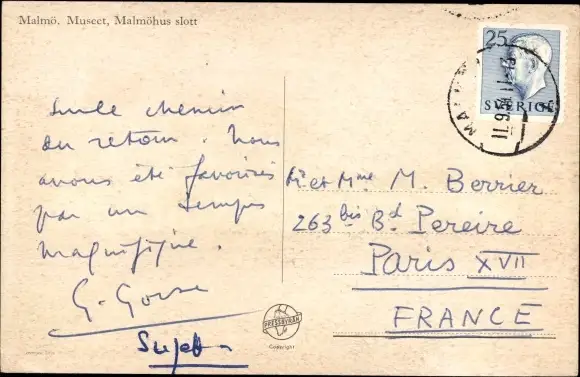 Malmö. Museet, Malmöhus slott
Sur le chemin
du retour. Nous
avons été favorisés
par un temps
magnifique.
G. Gorse
25
SVERIGE
MALMÖ
Mr et Mme M. Berrier
263 bis Bd Pereire
Paris XVII
FRANCE
PRESSBYRÅN
Copyright